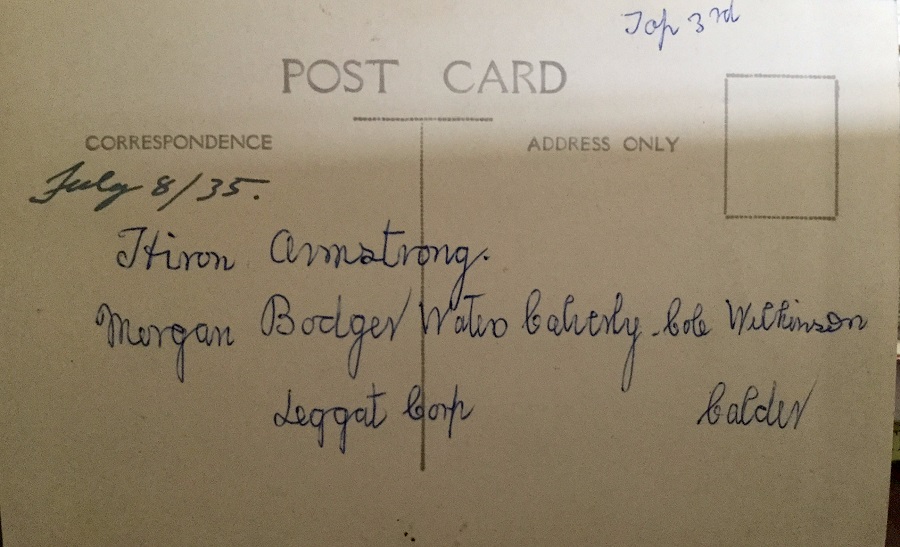 Top 3rd
POST CARD
CORRESPONDENCE ADDRESS ONLY
July 8/35.
Hiron Armstrong.
Morgan Bodger Calverly Cole Wilkinson
Leggat Corp Calder